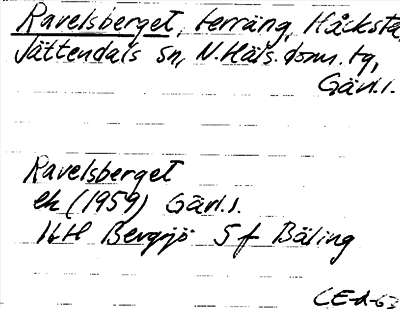 Ravelsberget, terräng, Håcksta,
Jättendals sn, N. Häls. doms. tg,
Gävl.l.
Ravelsberget
ek (1959) Gävl.l.
16H Bergsjö 5f Bäling
CE-d-63